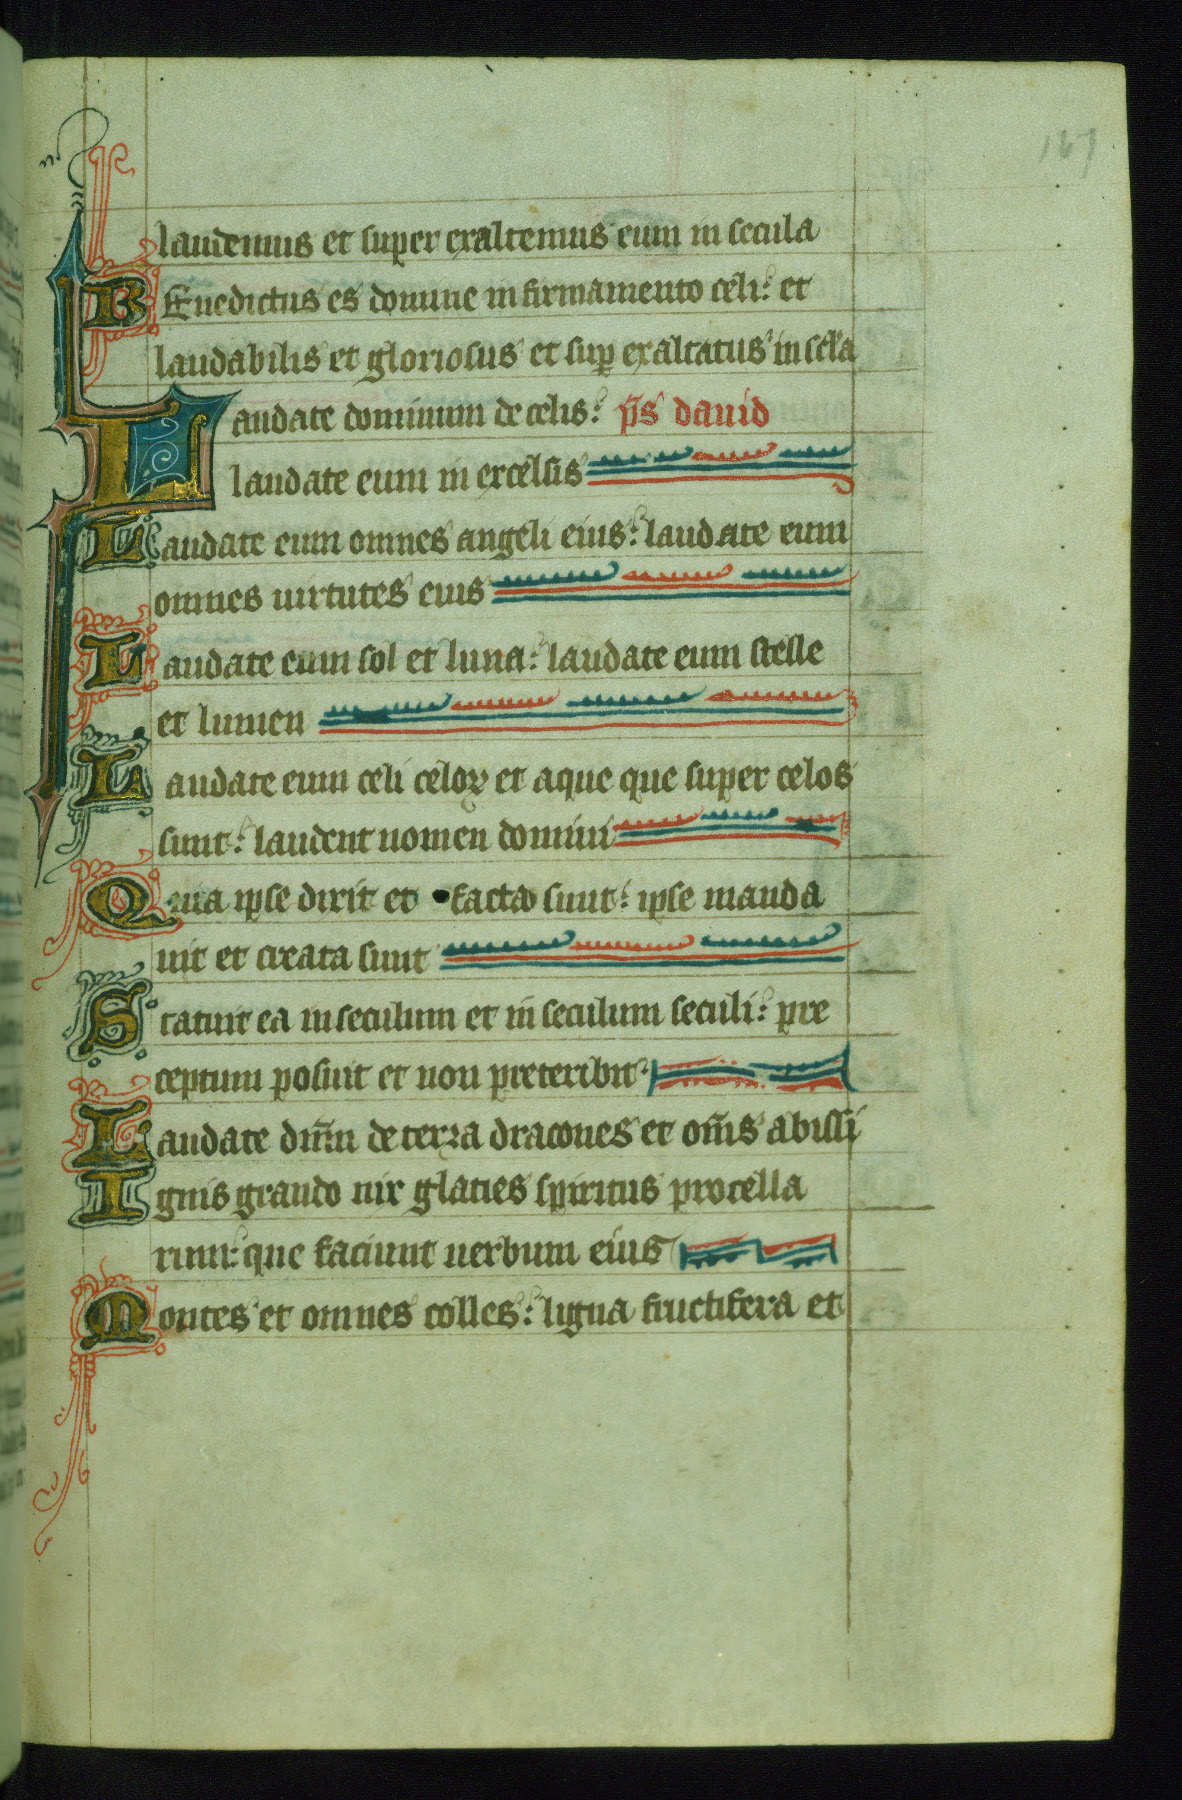 167
laudemus et super exaltemus eum in secula
BEnedictus es domine in firmamento celi: et
laudabilis et gloriosus et sup exaltatus in scła
Laudate dominum de celis: p̄s dauid
laudate eum in excelsis
Laudate eum omnes angeli eius: laudate eum
omnes uirtutes eius
Laudate eum sol et luna: laudate eum stelle
et lumen
Laudate eum celi celoꝝ et aque que super celos
sunt: laudent nomen domini
Quia ipse dixit et facta sunt: ipse manda
uit et creata sunt
Statuit ea in seculum et in seculum seculi: pre
ceptum posuit et non preteribit
Laudate dn̄m de terra dracones et om̄s abissi
Ignis grando nix glacies spiritus procella
rum: que faciunt uerbum eius
Montes et omnes colles: ligna fructifera et